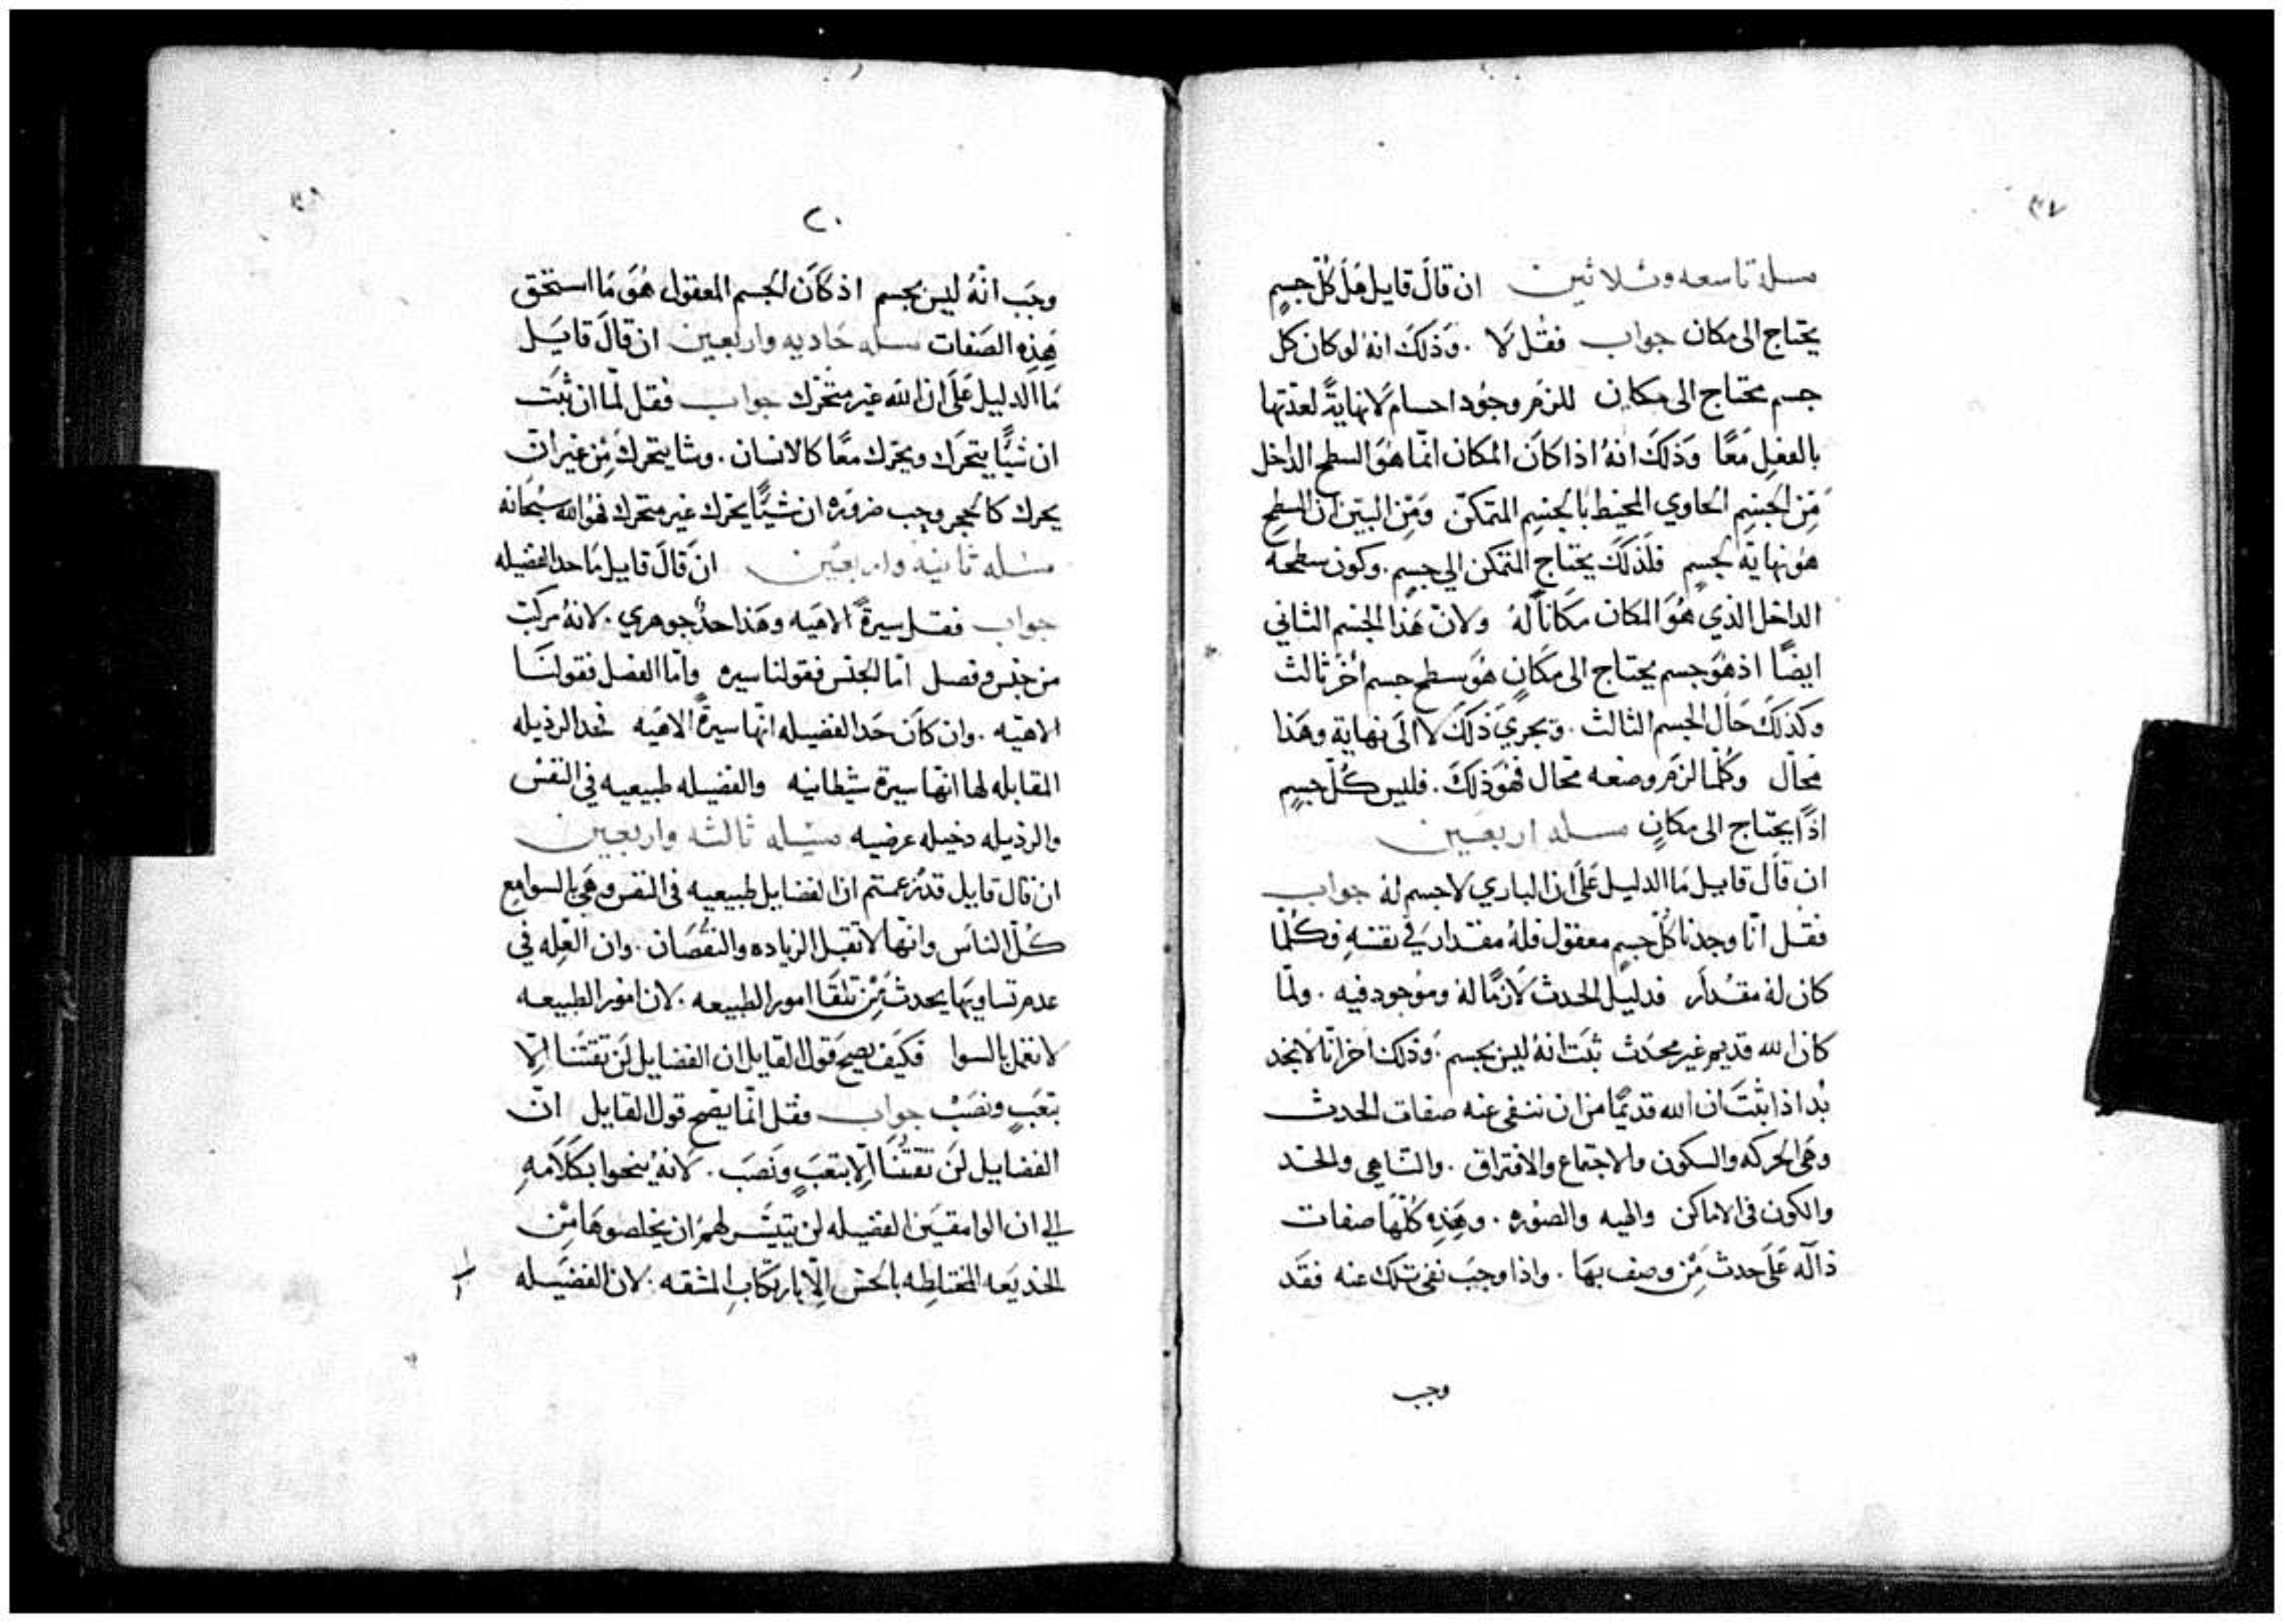 ٣٧
مسلة تاسعه وثلاثين ان قال قايل هل كل جسمٍ
يحتاج الى مكان جواب فقل لا . وذلك انه لو كان كل
جسم محتاج الى مكان للزم وجود اجسام لا نهايةً لعدتها
بالفعل معًا وذلك انه اذا كان المكان انما هو السطح الداخل
من الجسم الحاوي المحيط بالجسم المتمكن ومن البين ان السطح
هو نهاية لجسم فلذلك يحتاج المتمكن الي جسم . وكون سطحه
الداخل الذي هو المكان مكاناً له ولان هذا الجسم الثاني
ايضًا اذ هو جسم يحتاج الى مكانٍ هو سطح جسم اخر ثالث
وكذلك حال الجسم الثالث . ويجري ذلك لا الى نهاية وهذا
محال وكلما لزم وضعه محال فهو ذلك . فليس كل جسمٍ
اذًا يحتاج الى مكانٍ مسله اربعين
ان قال قايل ما الدليل على ان الباري لا جسم له جواب
فقل انا وجدنا كل جسمٍ معقول فله مقدار في نفسه وكلما
كان له مقدار فدليل الحدث لازمًا له وموجود فيه . ولما
كان الله قديم غير محدث ثبت انه ليس بجسم . وذلك اخر انا لا نجد
بُد اذا ثبت ان الله قديمًا من ان ننفى عنه صفات الحدث
وهى الحركه والسكون والاجتماع والافتراق . والتناهي والحد
والكون فى الاماكن والهيه والصوره . وهذه كلها صفات
دالَه على حدث من وصف بها . واذا وجب نفى تلك عنه فقد
وجب
٢٠
وجب انهُ ليس بجسم اذ كان الجسم المعقول هو ما استحق
هذِه الصفات مسله حاديه واربعين ان قال قايل
ما الدليل على ان الله غير متحرك جواب فقل لما ان ثبت
ان شيًا يتحرك ويحرك معًا كالانسان . وشا يتحرك من غير ان
يحرك كالحجر وجب ضروره ان شيًا يحرك غير متحرك فهو الله سبحانه
مسله ثانيه واربعين ان قال قايل ما حد الفضيله
جواب فقل سيرةً الاهيه وهذا حدٌ جوهري . لانهُ مركب
من جنس وفصل اما الجنس فقولنا سيره واما الفصل فقولنا
الاهيه . وان كان حد الفضيله انها سيرةً الاهيه فحد الرذيله
المقابله لها انها سيرة شيطانيه والفضيله طبيعيه في النفس
والرذيله دخيله عرضيه مسئله ثالثه واربعين
ان قال قايل قد زعمتم ان الفضايل طبيعيه فى النفس وهي بالسوا مع
كل الناس وانها لا تقبل الزياده والنقصان . وان العله في
عدم تساويها يحدث من تلقا امور الطبيعه . لان امور الطبيعه
لا تفعل بالسوا فكيف يصح قول القايل ان الفضايل لن تقتنا الا
بتعبٍ ونصبٍ جواب فقل انما يصح قول القايل ان
الفضايل لن تقتنا الا بتعبٍ ونصب . لانهُ ينحوا بكلامهِ
الي ان الوامقين الفضيله لن يتيسر لهم ان يخلصوها من
الخديعه المختلطه بالحس الا بارتكاب المشقه . لان الفضيله